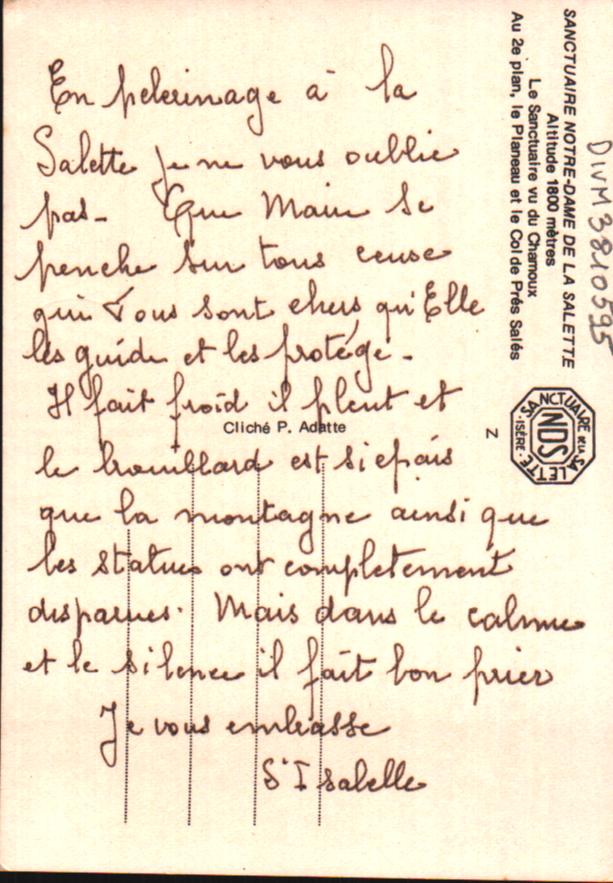 En pelerinage à la
Salette je ne vous oublie
pas- Que Marie se
penche sur tous ceuse
qui Vous sont chers qu'Elle
les guide et les protége-
Il fait froid il pleut et
le brouillard est si epais
que la montagne ainsi que
les statues ont completement
disparues. Mais dans le calme
et le silence il fait bon prier
Je vous embrasse
Sr Isabelle
Cliché P. Adatte
SANCTUAIRE NOTRE-DAME DE LA SALETTE
Altitude 1800 mètres
Le Sanctuaire vu du Chamoux
Au 2e plan, le Planeau et le Col de Prés Salés
DIVM3810595
Z
SANCTUAIRE DE LA SALETTE
·ISÈRE·
NDS